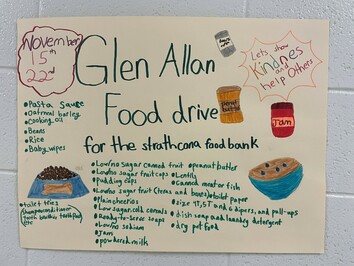 November
15th
22nd
Glen Allan
Food drive
for the strathcona food bank
Let's show
Kindnes
and
help Others
Peanut butter
Jam
• Pasta Sauce
• Oatmeal barley
• Cooking oil
• Beans
• Rice
• Baby wipes
• toilet tries
• Low/no sugar canned fruit
• Low/no sugar fruit cups
• Pudding cups
• Low/no sugar fruit
• Plain cheerios
• Low sugar cold cereals
• Ready-to-serve soups
• Low/no sodium
• Jam
• powdered milk
• peanut butter
• Lentils
• Canned meat or fish
• toilet paper
• size 4T, 5T and 6 dipers, and pull-ups
• dish soap and laundry detergent
• dry pet food